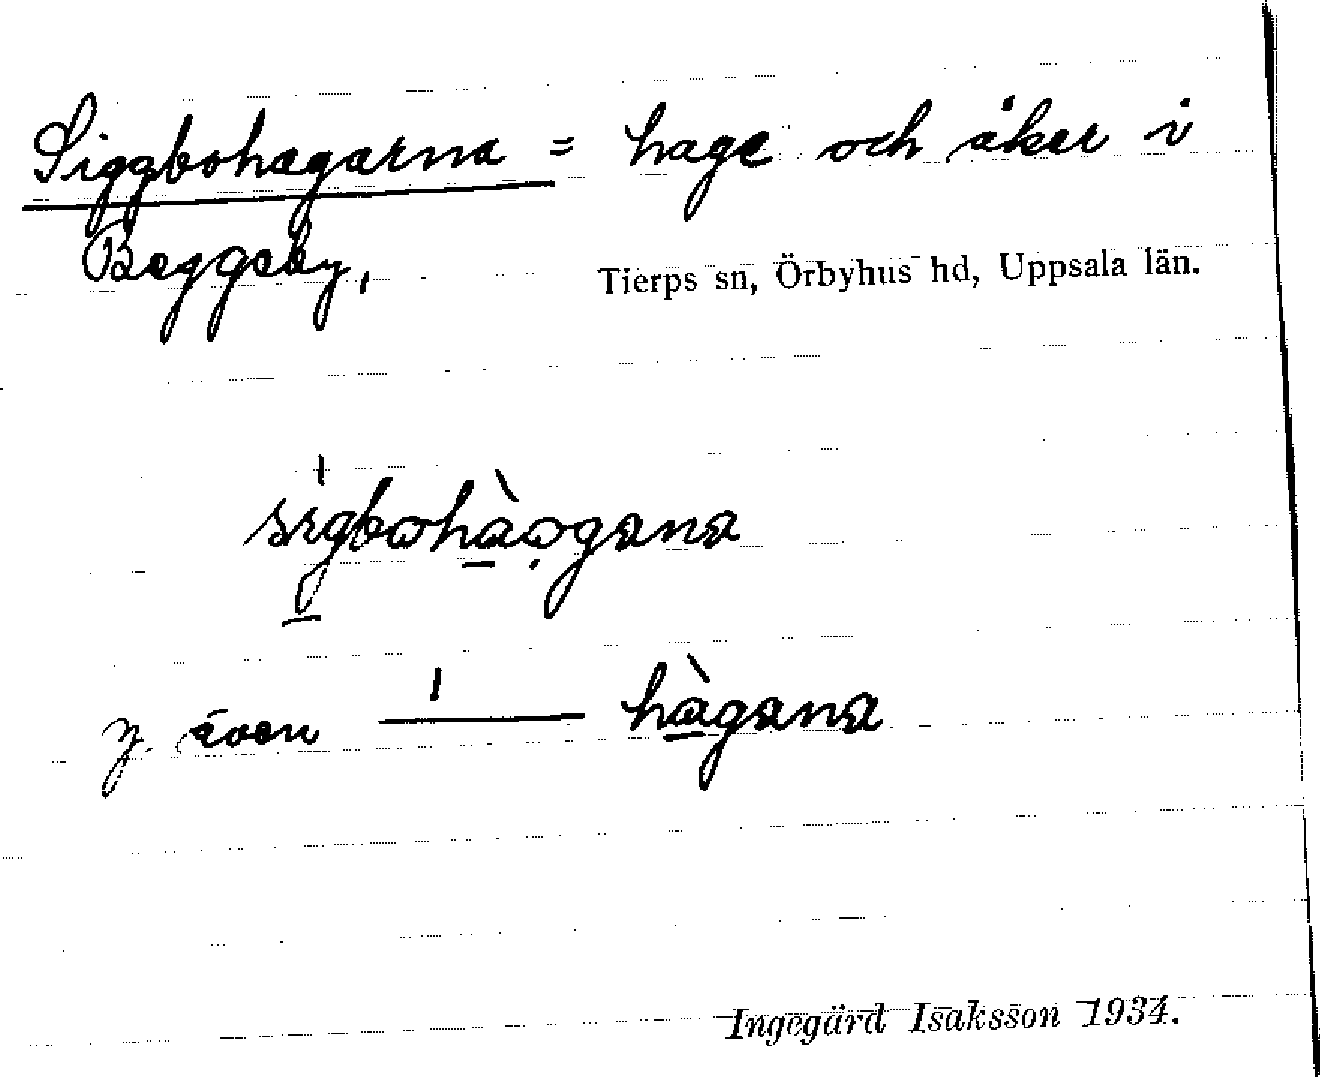 Siggbohagarna = hage och åker i
Baggeby,
Tierps sn, Örbyhus hd, Uppsala län.
sıgbωhàωgana
y. även ——— hàgana
Ingegärd Isaksson 1934.